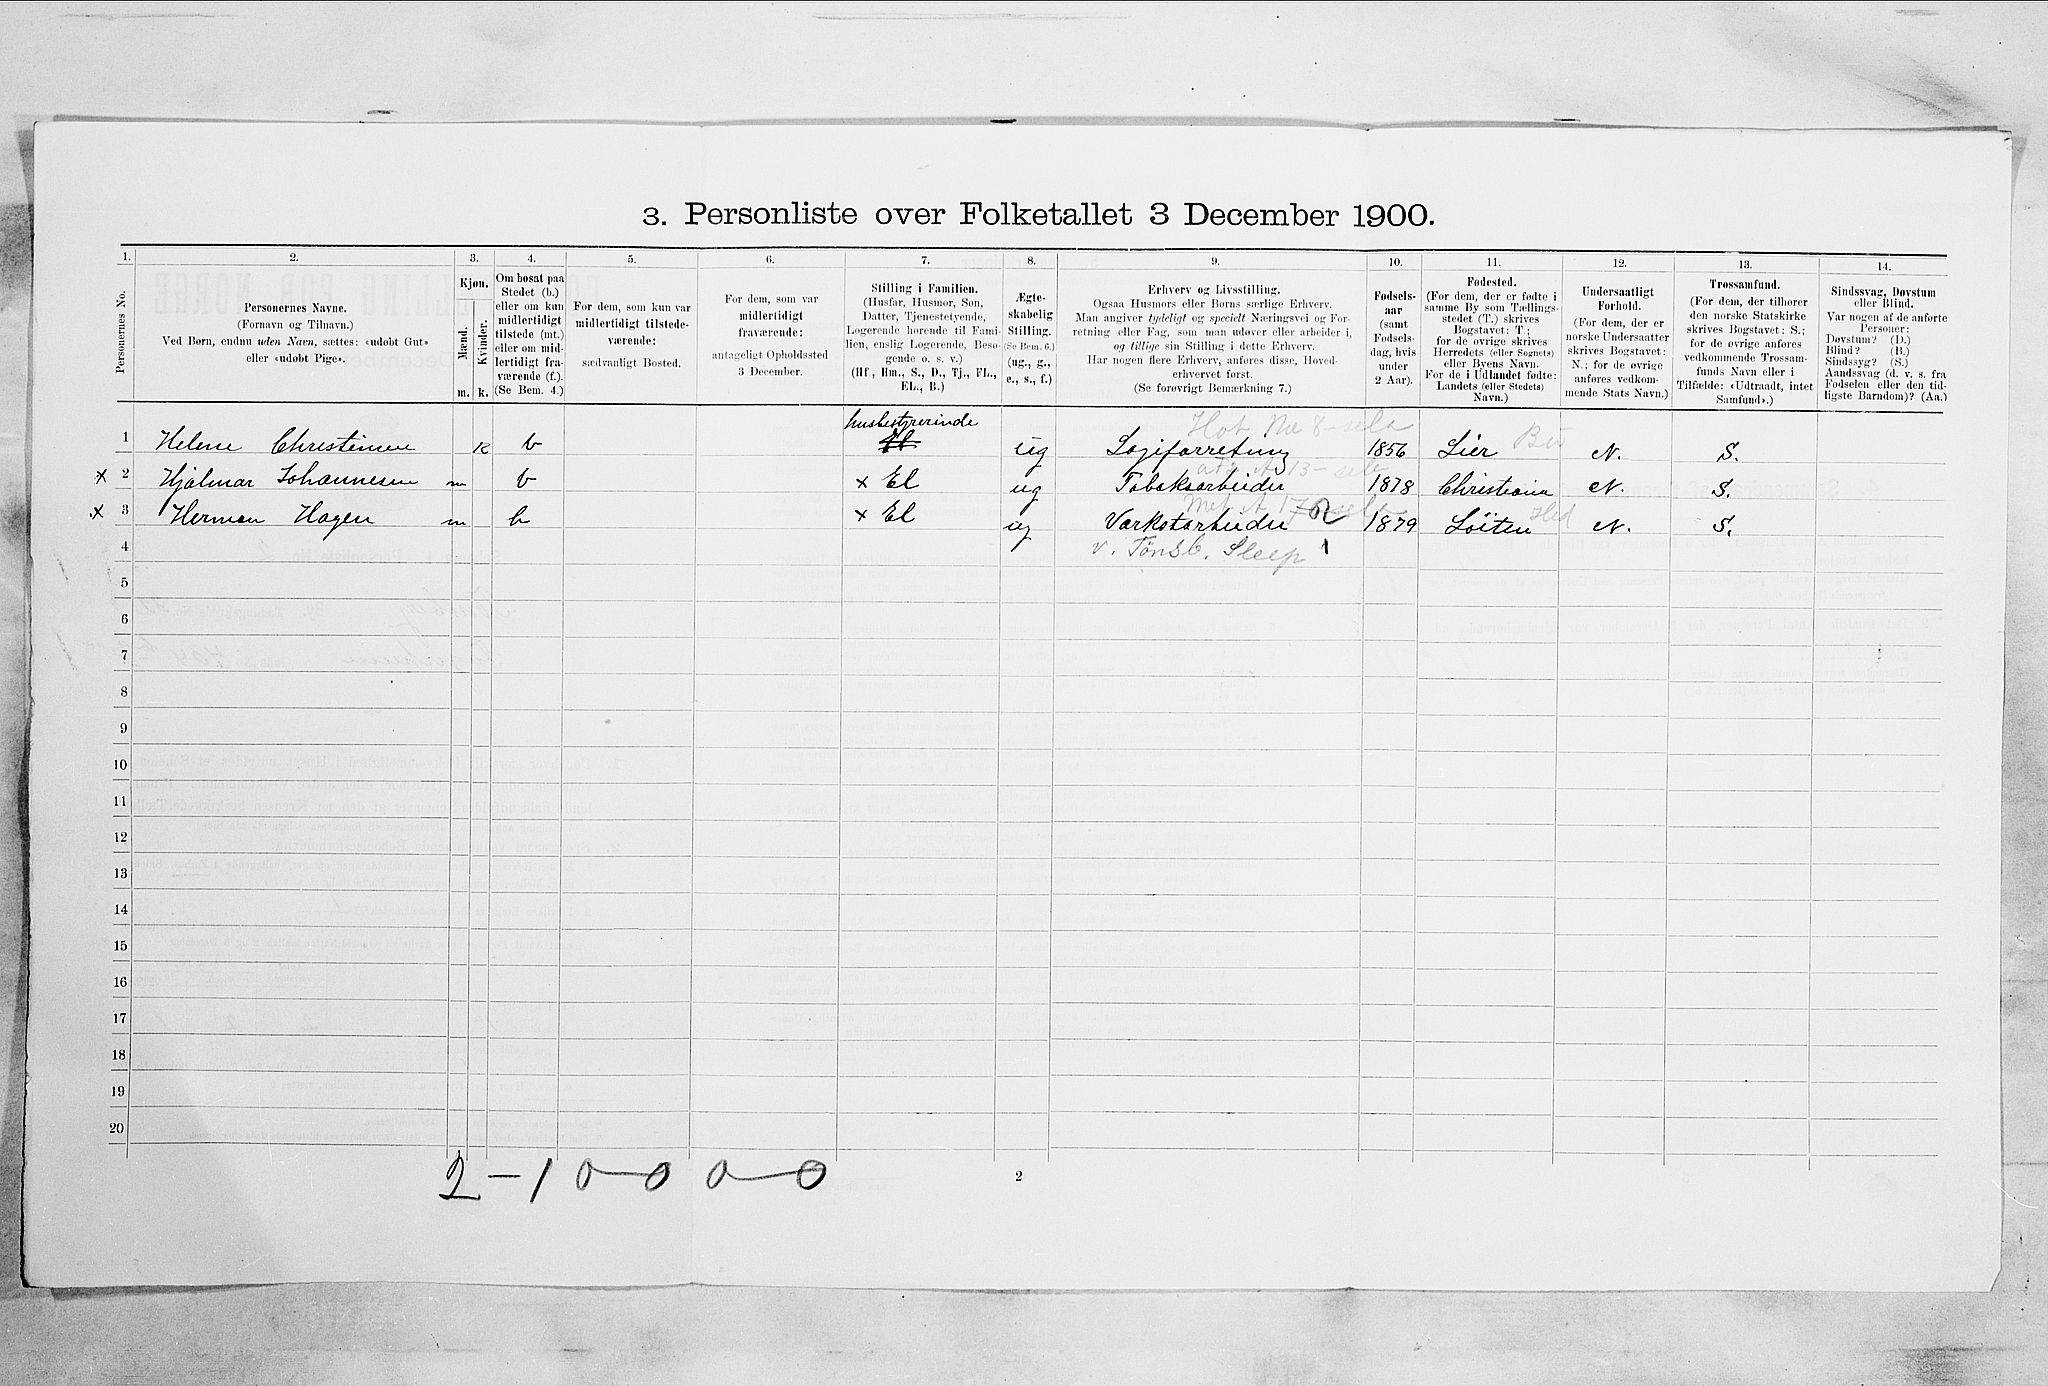 3. Personliste over Folketallet 3 December 1900.
1. 2. 3. 4. 5. 6. 7. 8. 9. 10. 11. 12. 13. 14.
Personernes No.
Personernes Navne.
(Fornavn og Tilnavn.)
Ved Børn, endnu uden Navn, sættes: «udøbt Gut»
eller «udøbt Pige».
Kjøn.
Mænd.
Kvinder.
m. k.
Om bosat paa
Stedet (b.)
eller om kun
midlertidigt
tilstede (mt.)
eller om mid-
lertidigt fra-
værende (f.).
(Se Bem. 4.)
For dem, som kun var
midlertidigt tilstede-
værende:
sædvanligt Bosted.
For dem, som var
midlertidigt
fraværende:
antageligt Opholdssted
3 December.
Stilling i Familien.
(Husfar, Husmor, Søn,
Datter, Tjenestetyende,
Logerende hørende til Fami-
lien, enslig Logerende, Besø-
gende o. s. v.)
(Hf., Hm., S., D., Tj., FL.,
EL., B.)
Ægte-
skabelig
Stilling.
(Se Bem. 6.)
(ug., g.,
e., s., f.)
Erhverv og Livsstilling.
Ogsaa Husmors eller Børns særlige Erhverv.
Man angiver tydeligt og specielt Næringsvei og For-
retning eller Fag, som man udøver eller arbeider i,
og tillige sin Stilling i dette Erhverv.
Har nogen flere Erhverv, anføres disse, Hoved-
erhvervet først.
(Se forøvrigt Bemærkning 7.)
Fødsels-
aar
(samt
Fødsels-
dag, hvis
under
2 Aar).
Fødested.
(For dem, der er fødte i
samme By som Tællings-
stedet (T.) skrives
Bogstavet: T.;
for de øvrige skrives
Herredets (eller Sognets)
eller Byens Navn.
For de i Udlandet fødte:
Landets (eller Stedets)
Navn.)
Undersaatligt
Forhold.
(For dem, der er
norske Undersaatter
skrives Bogstavet:
N.; for de øvrige
anføres vedkom-
mende Stats Navn.)
Trossamfund.
(For dem, der tilhører
den norske Statskirke
skrives Bogstavet: S.;
for de øvrige anføres
vedkommende Trossam-
funds Navn eller i
Tilfælde: «Udtraadt, intet
Samfund».)
Sindssvag, Døvstum
eller Blind.
Var nogen af de anførte
Personer:
Døvstum? (D.)
Blind? (B.)
Sindssyg? (S.)
Aandssvag (d. v. s. fra
Fødselen eller den tid-
ligste Barndom)? (Aa.)
husbestyrerinde
1 Helene Christensen K b ug Logiforretning 1856 Lier N. S.
× 2 Hjalmar Johannesen m b × El ug Tobaksarbeider 1878 Christiania N. S.
× 3 Herman Hagen m b × El ug Værkstarbeider 1879 Løiten N. S.
4 v. Tønsb. Sleep
5
6
7
8
9
10
11
12
13
14
15
16
17
18
19
20
2 – 1 0 – 0 0 – 0
2